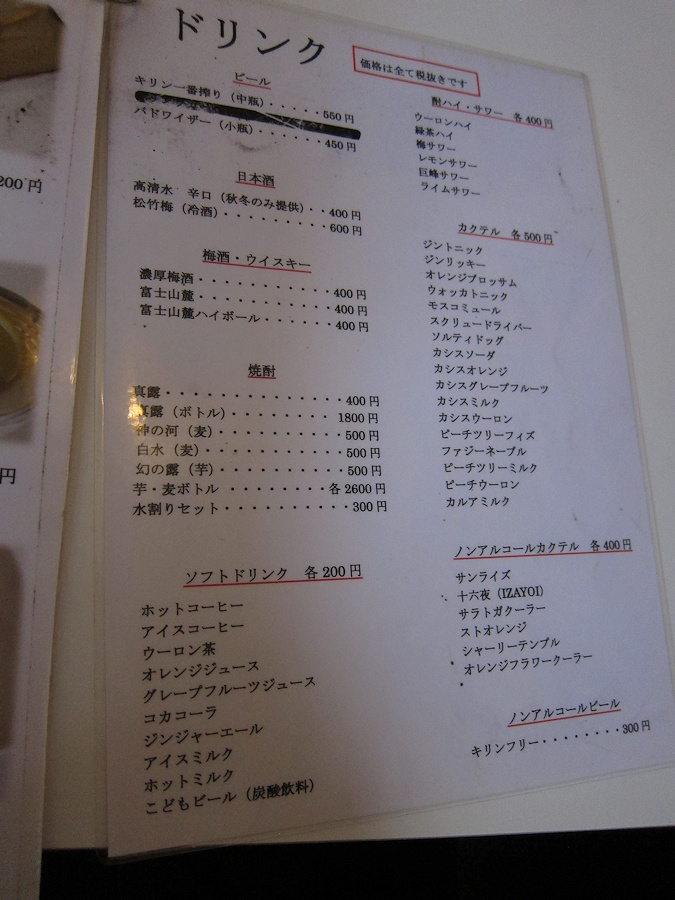 200円
円
ドリンク
価格は全て税抜きです
ビール
キリン一番搾り（中瓶）・・・・・550円
バドワイザー（小瓶）・・・・・・450円
日本酒
高清水　辛口（秋冬のみ提供）・・400円
松竹梅（冷酒）・・・・・・・・・600円
梅酒・ウイスキー
濃厚梅酒・・・・・・・・・・・400円
富士山麓・・・・・・・・・・・400円
富士山麓ハイボール・・・・・・400円
焼酎
真露・・・・・・・・・・・・・・400円
真露（ボトル）・・・・・・・・1800円
神の河（麦）・・・・・・・・・・500円
白水（麦）・・・・・・・・・・・500円
幻の露（芋）・・・・・・・・・・500円
芋・麦ボトル　・・・・・・・・各2600円
水割りセット・・・・・・・・・・300円
ソフトドリンク　各200円
ホットコーヒー
アイスコーヒー
ウーロン茶
オレンジジュース
グレープフルーツジュース
コカコーラ
ジンジャーエール
アイスミルク
ホットミルク
こどもビール（炭酸飲料）
酎ハイ・サワー　各400円
ウーロンハイ
緑茶ハイ
梅サワー
レモンサワー
巨峰サワー
ライムサワー
カクテル　各500円
ジントニック
ジンリッキー
オレンジブロッサム
ウォッカトニック
モスコミュール
スクリュードライバー
ソルティドッグ
カシスソーダ
カシスオレンジ
カシスグレープフルーツ
カシスミルク
カシスウーロン
ピーチツリーフィズ
ファジーネーブル
ピーチツリーミルク
ピーチウーロン
カルアミルク
ノンアルコールカクテル　各400円
サンライズ
十六夜（IZAYOI）
サラトガクーラー
ストオレンジ
シャーリーテンプル
オレンジフラワークーラー
ノンアルコールビール
キリンフリー・・・・・・・・300円